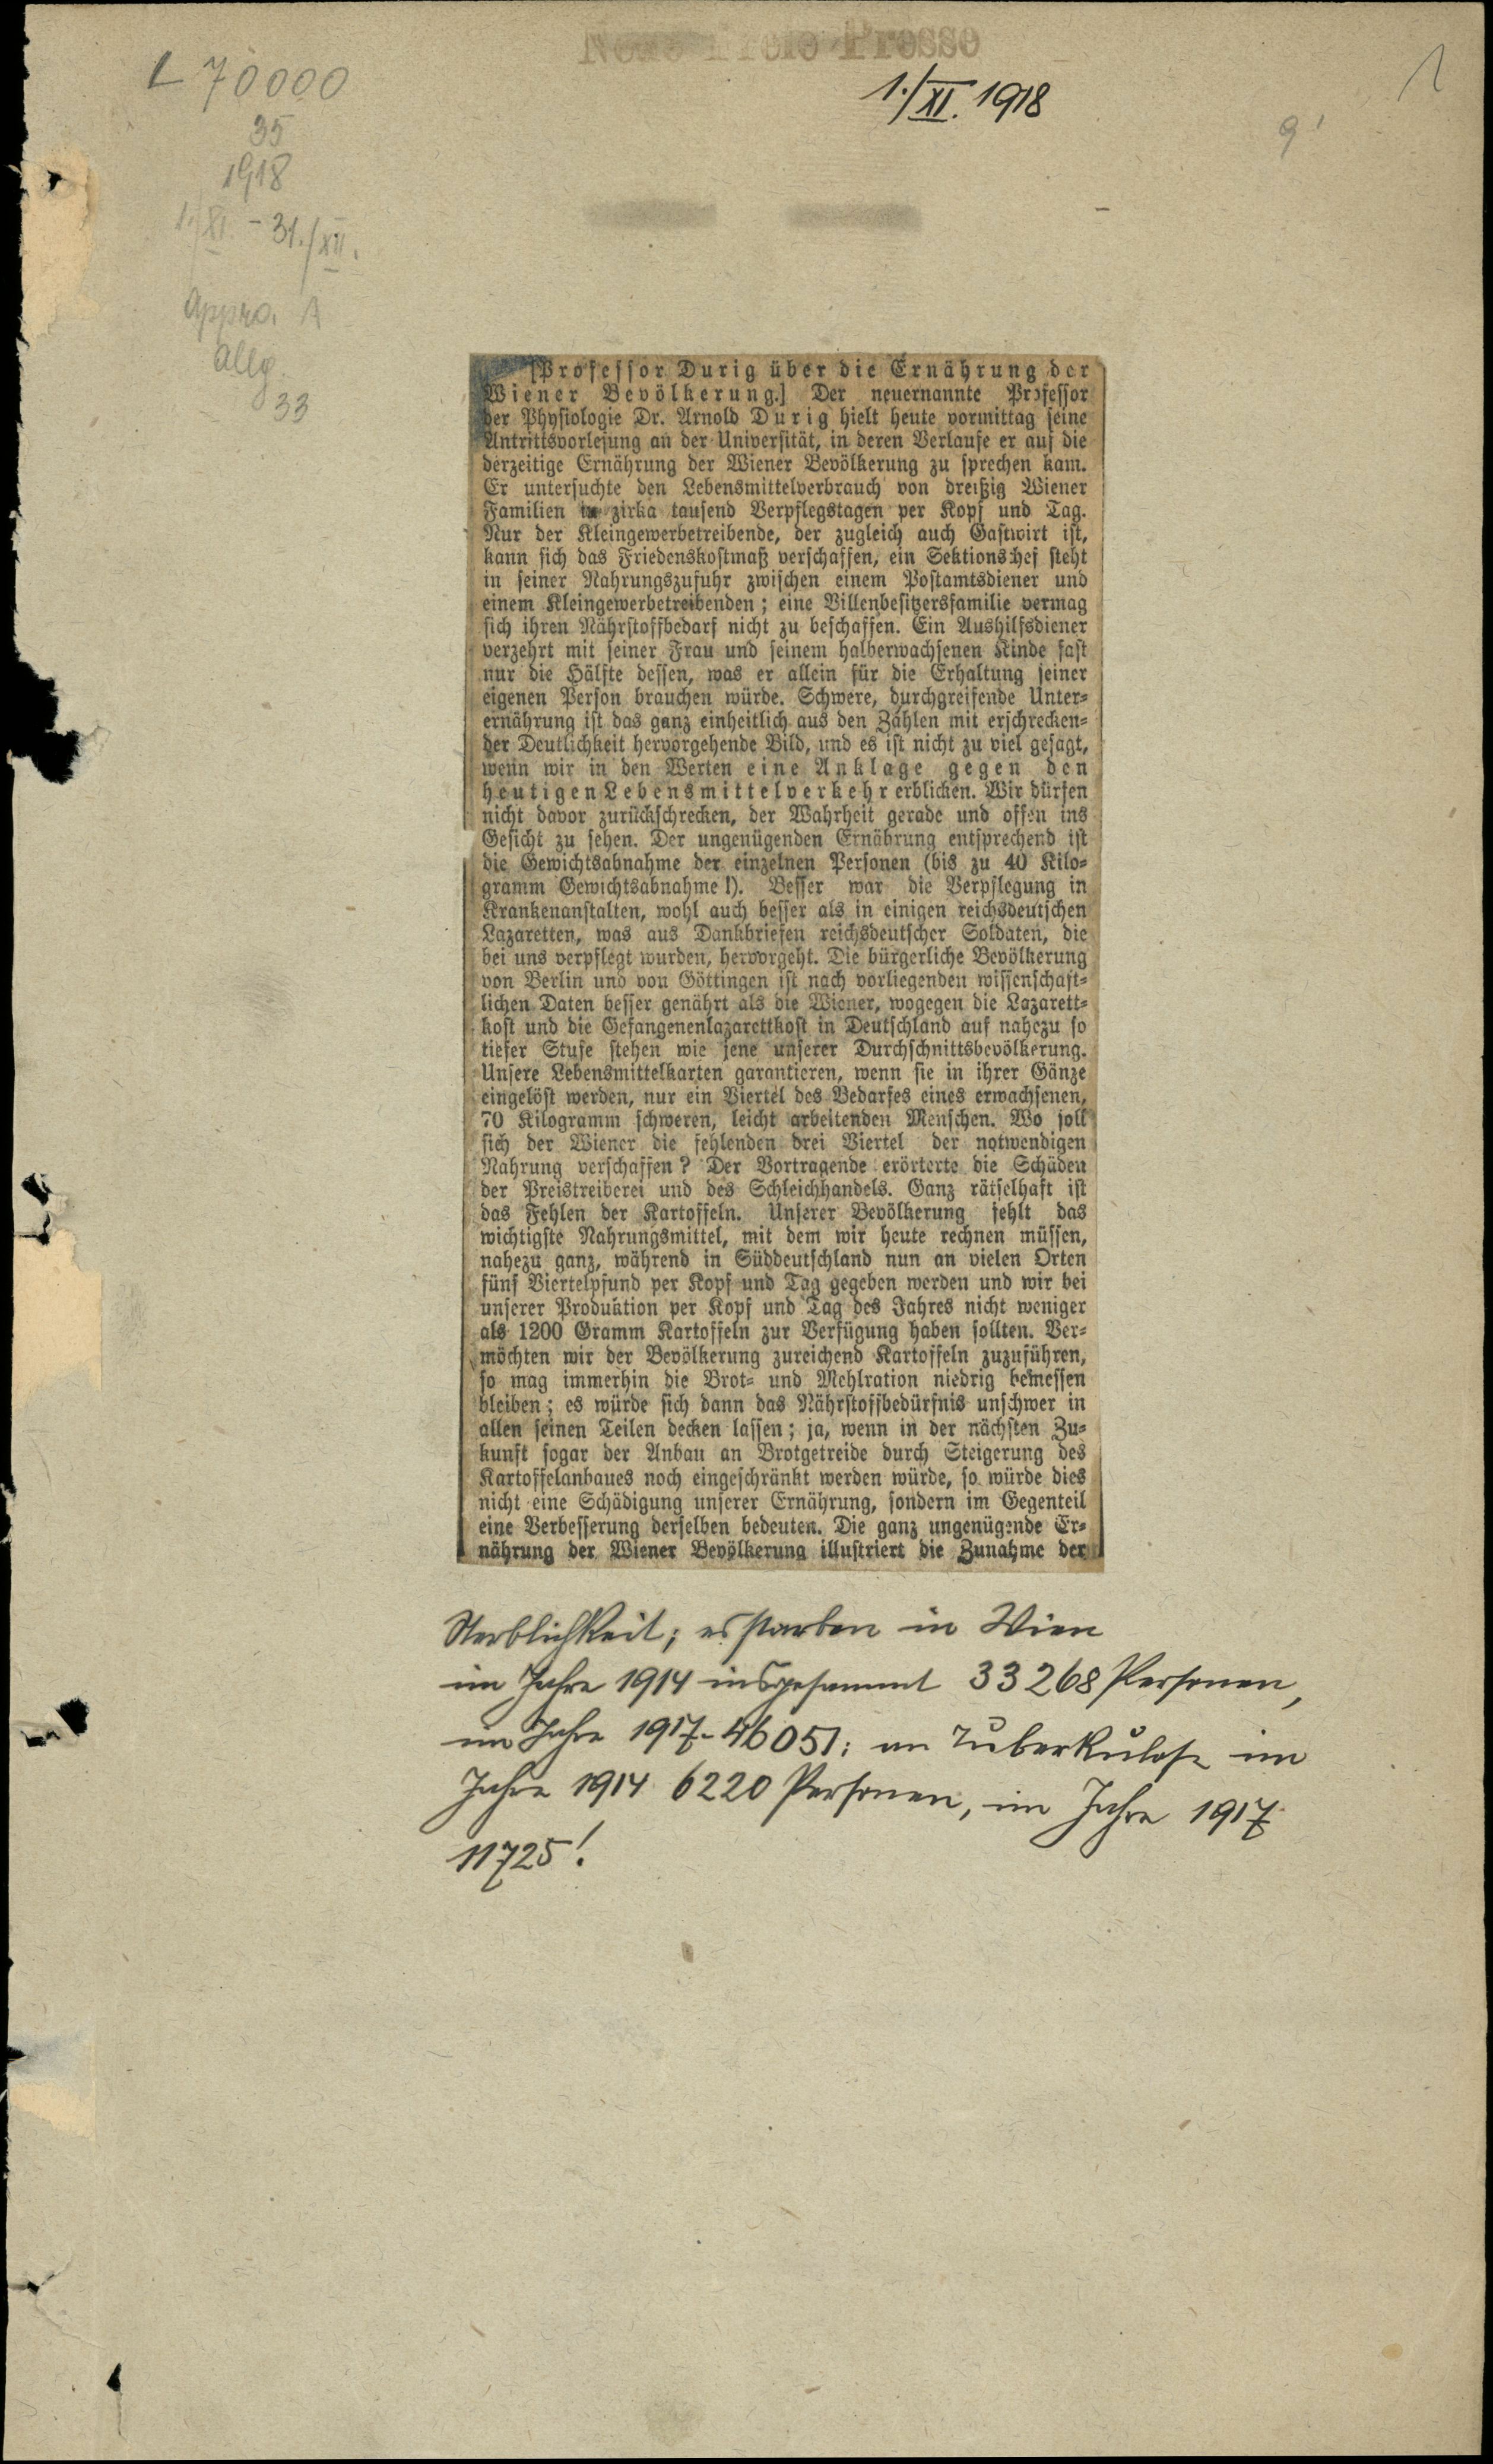 Neue Freie Presse
L 70000
1./XI. 1918
1
35
9'
1918
1./XI. - 31./XII.
Appro. A
allg.
33
[Professor Durig über die Ernährung der
Wiener Bevölkerung.] Der neuernannte Professor
der Physiologie Dr. Arnold Durig hielt heute vormittag seine
Antrittsvorlesung an der Universität, in deren Verlaufe er auf die
derzeitige Ernährung der Wiener Bevölkerung zu sprechen kam.
Er untersuchte den Lebensmittelverbrauch von dreißig Wiener
Familien in zirka tausend Verpflegstagen per Kopf und Tag.
Nur der Kleingewerbetreibende, der zugleich auch Gastwirt ist,
kann sich das Friedenskostmaß verschaffen, ein Sektionschef steht
in seiner Nahrungszufuhr zwischen einem Postamtsdiener und
einem Kleingewerbetreibenden; eine Villenbesitzersfamilie vermag
sich ihren Nährstoffbedarf nicht zu beschaffen. Ein Aushilfsdiener
verzehrt mit seiner Frau und seinem halberwachsenen Kinde fast
nur die Hälfte dessen, was er allein für die Erhaltung seiner
eigenen Person brauchen würde. Schwere, durchgreifende Unter-
ernährung ist das ganz einheitlich aus den Zahlen mit erschrecken-
der Deutlichkeit hervorgehende Bild, und es ist nicht zu viel gesagt,
wenn wir in den Werten eine Anklage gegen den
heutigen Lebensmittelverkehr erblicken. Wir dürfen
nicht davor zurückschrecken, der Wahrheit gerade und offen ins
Gesicht zu sehen. Der ungenügenden Ernährung entsprechend ist
die Gewichtsabnahme der einzelnen Personen (bis zu 40 Kilo-
gramm Gewichtsabnahme!). Besser war die Verpflegung in
Krankenanstalten, wohl auch besser als in einigen reichsdeutschen
Lazaretten, was aus Dankbriefen reichsdeutscher Soldaten, die
bei uns verpflegt wurden, hervorgeht. Die bürgerliche Bevölkerung
von Berlin und von Göttingen ist nach vorliegenden wissenschaft-
lichen Daten besser genährt als die Wiener, wogegen die Lazarett-
kost und die Gefangenenlazarettkost in Deutschland auf nahezu so
tiefer Stufe stehen wie jene unserer Durchschnittsbevölkerung.
Unsere Lebensmittelkarten garantieren, wenn sie in ihrer Gänze
eingelöst werden, nur ein Viertel des Bedarfes eines erwachsenen,
70 Kilogramm schweren, leicht arbeitenden Menschen. Wo soll
sich der Wiener die fehlenden drei Viertel der notwendigen
Nahrung verschaffen? Der Vortragende erörterte die Schäden
der Preistreiberei und des Schleichhandels. Ganz rätselhaft ist
das Fehlen der Kartoffeln. Unserer Bevölkerung fehlt das
wichtigste Nahrungsmittel, mit dem wir heute rechnen müssen,
nahezu ganz, während in Süddeutschland nun an vielen Orten
fünf Viertelpfund per Kopf und Tag gegeben werden und wir bei
unserer Produktion per Kopf und Tag des Jahres nicht weniger
als 1200 Gramm Kartoffeln zur Verfügung haben sollten. Ver-
möchten wir der Bevölkerung zureichend Kartoffeln zuzuführen,
so mag immerhin die Brot- und Mehlration niedrig bemessen
bleiben; es würde sich dann das Nährstoffbedürfnis unschwer in
allen seinen Teilen decken lassen; ja, wenn in der nächsten Zu-
kunft sogar der Anbau an Brotgetreide durch Steigerung des
Kartoffelanbaues noch eingeschränkt werden würde, so würde dies
nicht eine Schädigung unserer Ernährung, sondern im Gegenteil
eine Verbesserung derselben bedeuten. Die ganz ungenügende Er-
nährung der Wiener Bevölkerung illustriert die Zunahme der
Sterblichkeit; es starben in Wien
im Jahre 1914 insgesammt 33268 Personen,
im Jahre 1917 - 46051; an Tuberkulose im
Jahre 1914 6220 Personen, im Jahre 1917
11725!